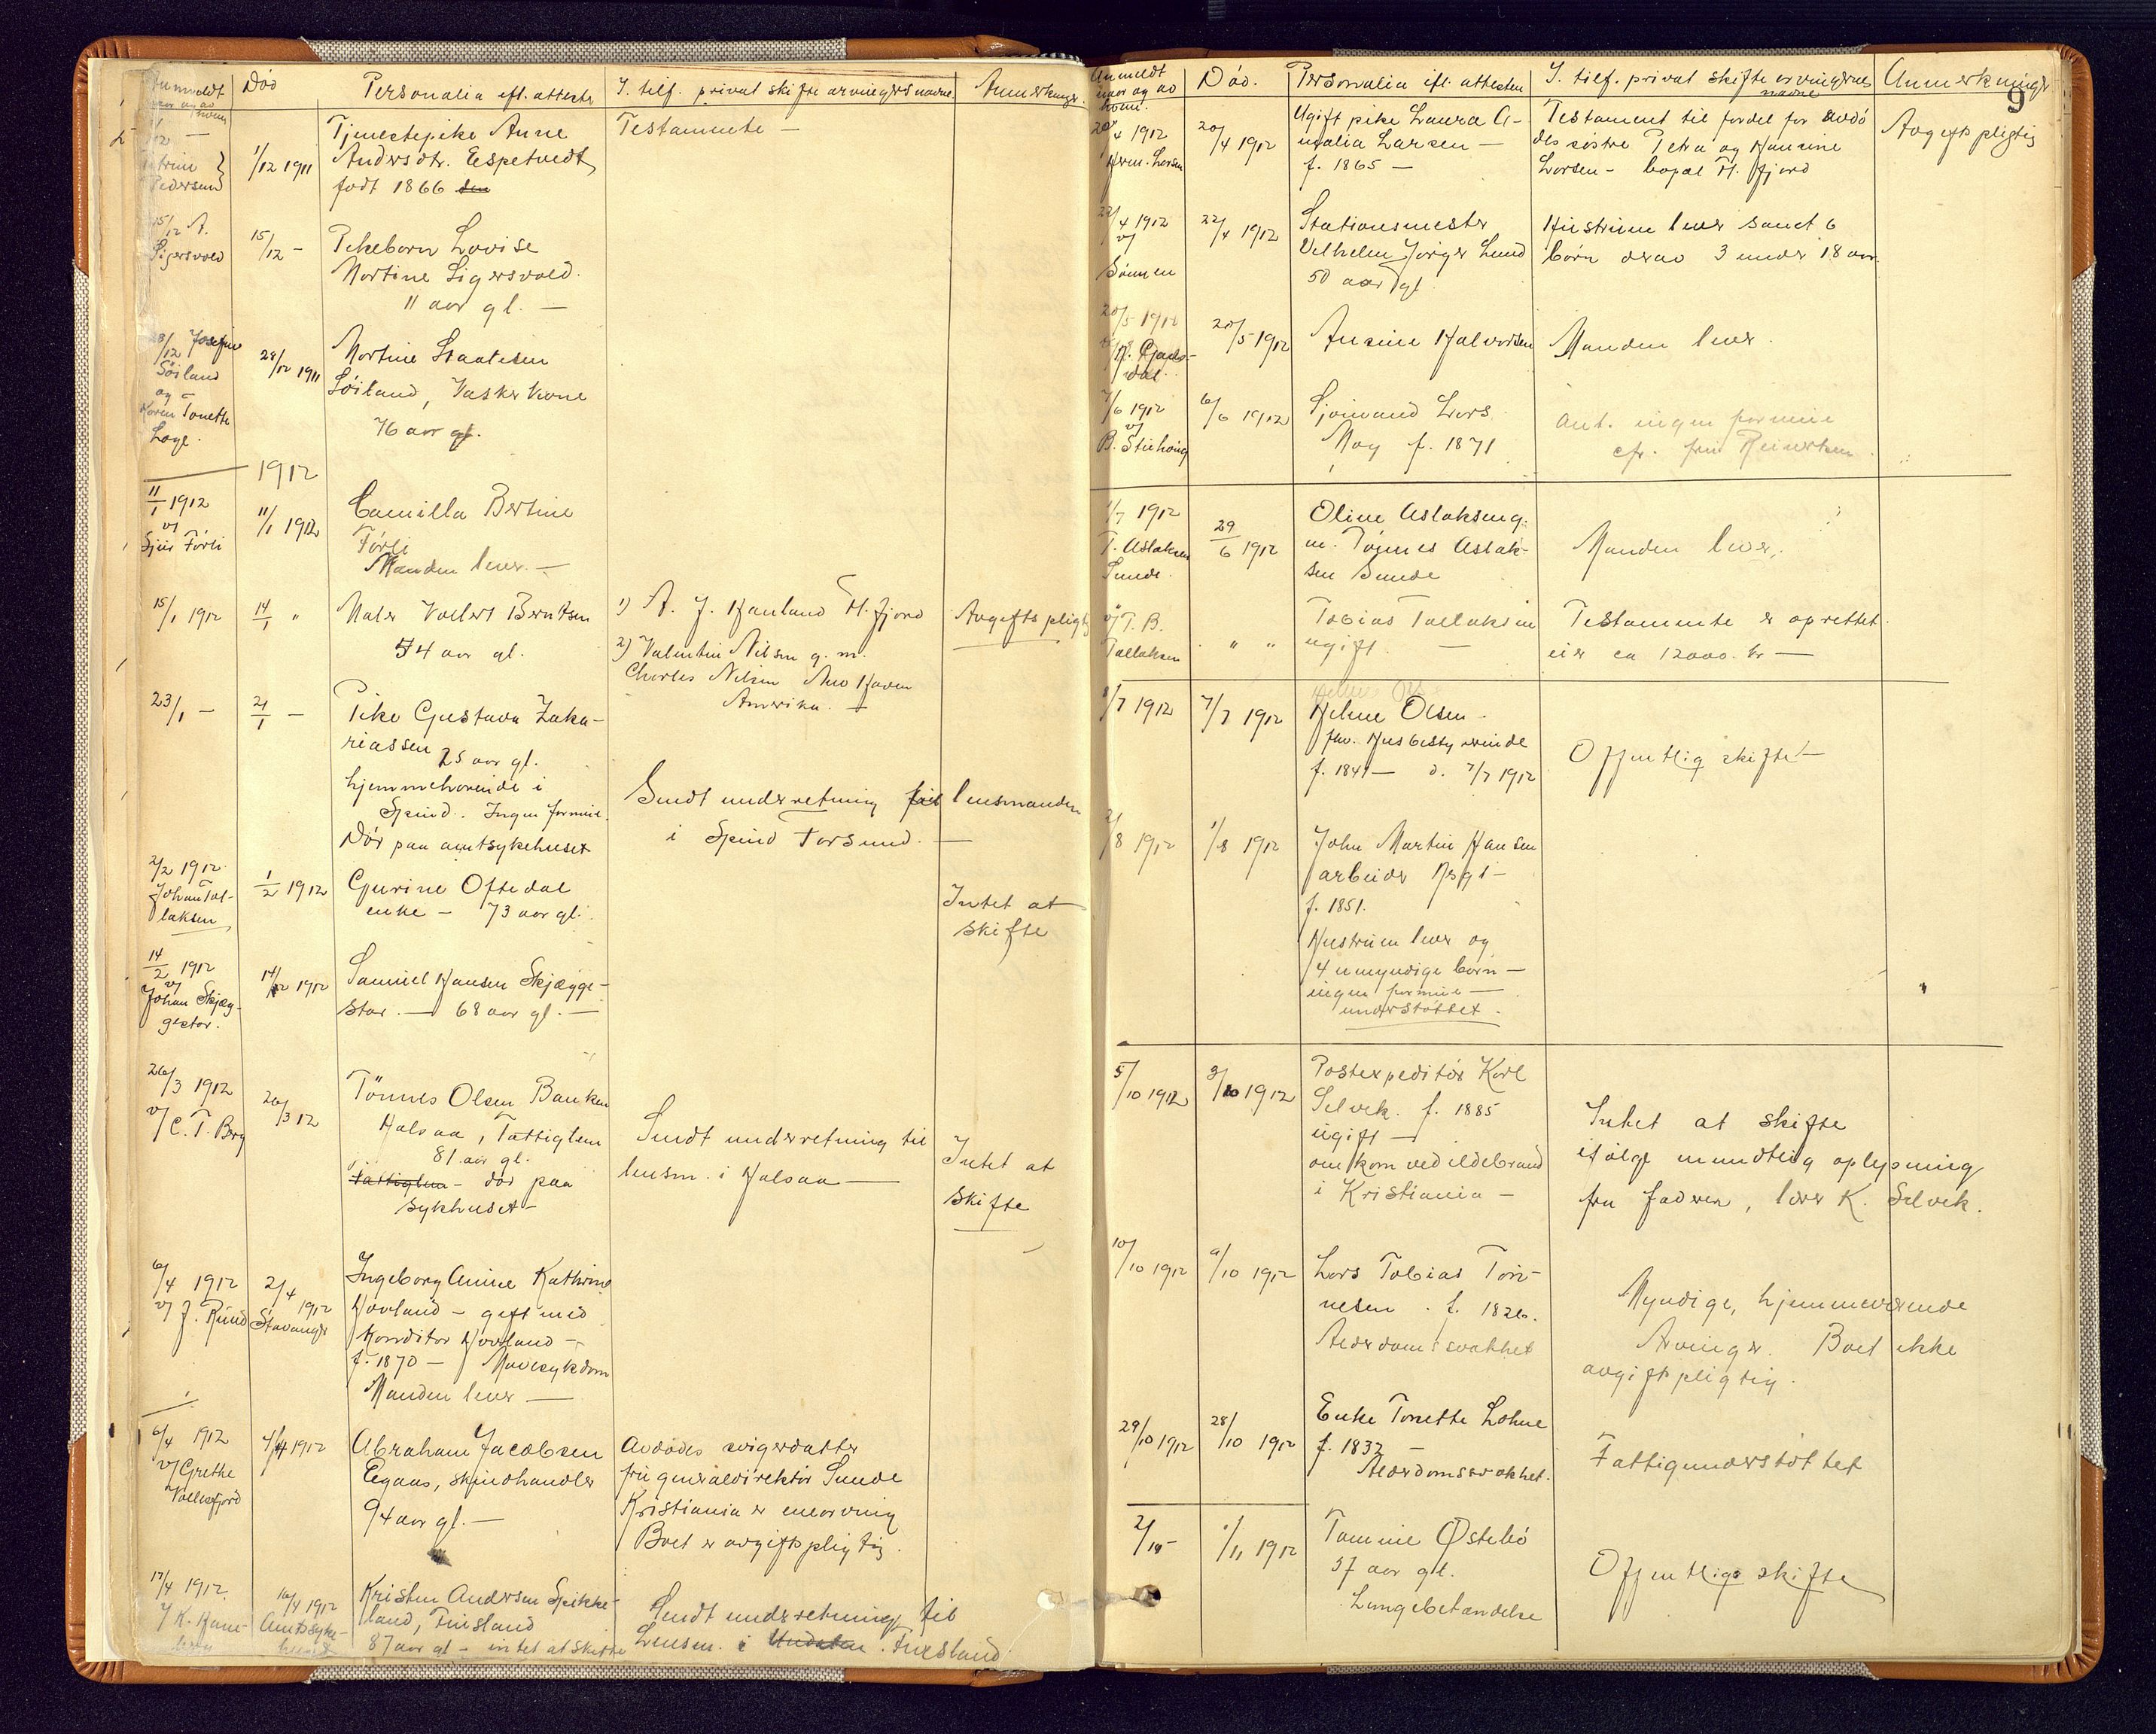 Anmeldt naar og av hvem
Død
Personalia efl. attesten
I tilf. privat skifte arvingers navne
Anmerkninger.
1/12 —
Pedersen
1/12 1911
Tjenestepike Anne
Andersdtr. Eespetvedt
født 1866
Testamente —
15/12 A.
Sigersvold
15/12 —
Pikebarn Lovise
Martine Sigersvold.
11 aar gl. —
28/12 Josefine
Søiland
og
Karen Tonette
Loge.
28/12 1911
Martine Staalesen
Søiland, Vaskerkone
76 aar gl.
1912
11/1 1912
v/
Førli
11/1 1912
Camilla Bertine
Førli
Manden lever. —
15/1 1912
14/1 "
Maler Vallert Berntsen
54 aar gl.
1) A. J. Hauland Fl. fjord
2) Valentin Nilsen g. m.
Charles Nilsen New Haven
Amerika. —
Avgiftspligtig
23/1 —
21/1 —
Pike Gustava Zaka-
riassen 25 aar gl.
hjemmehørende i
Spind. Ingen formue.
Dør paa amtsykehuset
Sendt underretning til lensmanden
i Spind Farsund. —
2/2 1912
Johan Tal-
laksen
1/2 1912
Gurine Oftedal
enke — 73 aar gl.
Intet at
skifte
14/2 1912
v/
Johan Skjeg-
gestar.
14/2 1912
Samuel Hansen Skjægge-
star. — 68 aar gl. —
26/3 1912
v/ C. T. Berg
26/3 12
Tönnes Olsen Banken
Halsaa, Fattiglem
81 aar gl.
fattiglem — dør paa
sykhuset —
Sendt underretning til
lensm. i Halsaa —
Intet at
skifte
6/4 1912
v/ J. Rund
2/4 1912
Stavanger
Ingeborg Amine Kathrine
Hovland — gift med
Konditor Hovland —
f. 1870 — Mavesykdom
Manden lever —
6/4 1912
v/ Grethe
4/4 1912
Abraham Jacobsen
Egaas, skindhandler
94 aar gl. —
Avdødes svigerdatter
fru generaldirektør Sunde
Kristiania er enearving
Boet er avgiftspligtig.
17/4 1912
16/4 1912
Amtssyke-
huset
Kristen Andersen Spikke-
land, Finsland
87 aar gl — intet at skifte
Sendt underretning til
Lensm. i Undalen. Finsland
Anmeldt naar og av hvem.
Død.
Personalia efl. attesten
I. tilf. privat skifte arvingernes navne
Anmerkninger
9
20/4 1912
Larsen
20/4 1912
Ugift pike Laura A-
malia Larsen —
f. 1865 —
Testament til fordel for avdø
des søstre Petra og Hansine
Larsen — bopæl Fl. fjord
Avgiftspligtig
22/4 1912
v/
Sønnen
22/4 1912
Stationsmester
Vilhelm Jørger Lund
50 aar gl.
Hustruen lever samt 6
børn derav 3 under 18 aar.
20/5 1912
20/5 1912
Ansine Halvorsen
Manden lever.
7/6 1912
v/
6/6 1912
Sjømand Lars
May f. 1871
Ant. ingen formue
cfr. fru Reinertsen.
1/7 1912
T. Aslaksen
Sunde.
29/6 1912
Oline Aslaksen g.
m. Tønnes Aslak-
sen Sunde
Manden lever.
v/ T. B.
Tallaksen
" "
Tobias Tallaksen
ugift. —
Testamente er oprettet.
eier ca 12000. kr —
8/7 1912
7/7 1912
Helene Olsen.
fhv. Husbestyrerinde
f. 1841 — d. 7/7 1912
Offentlig skifte —
2/8 1912
1/8 1912
John Martin Hansen
arbeider
f. 1851.
Hustruen lever og
4 umyndige børn —
ingen formue —
understøttet.
5/10 1912
3/10 1912
Postexpeditør Karl
Selvik. f. 1885
ugift —
omkom ved ildebrand
i Kristiania —
Intet at skifte
ifølge mundtlig oplysning
fra faderen, lærer K. Selvik.
10/10 1912
9/10 1912
Lars Tobias Tøn-
nesen. f. 1826.
Alderdomssvakhet
Myndige, hjemmeværende
Arvinger. Boet ikke
avgiftspligtig.
29/10 1912
28/10 1912
Enke Tonette Lohne
f. 1832 —
Alderdomssvakhet.
Fattigunderstøttet
2/11 —
1/11 1912
Tommine Østebø
57 aar gl.
Lungebetændelse
Offentlig skifte